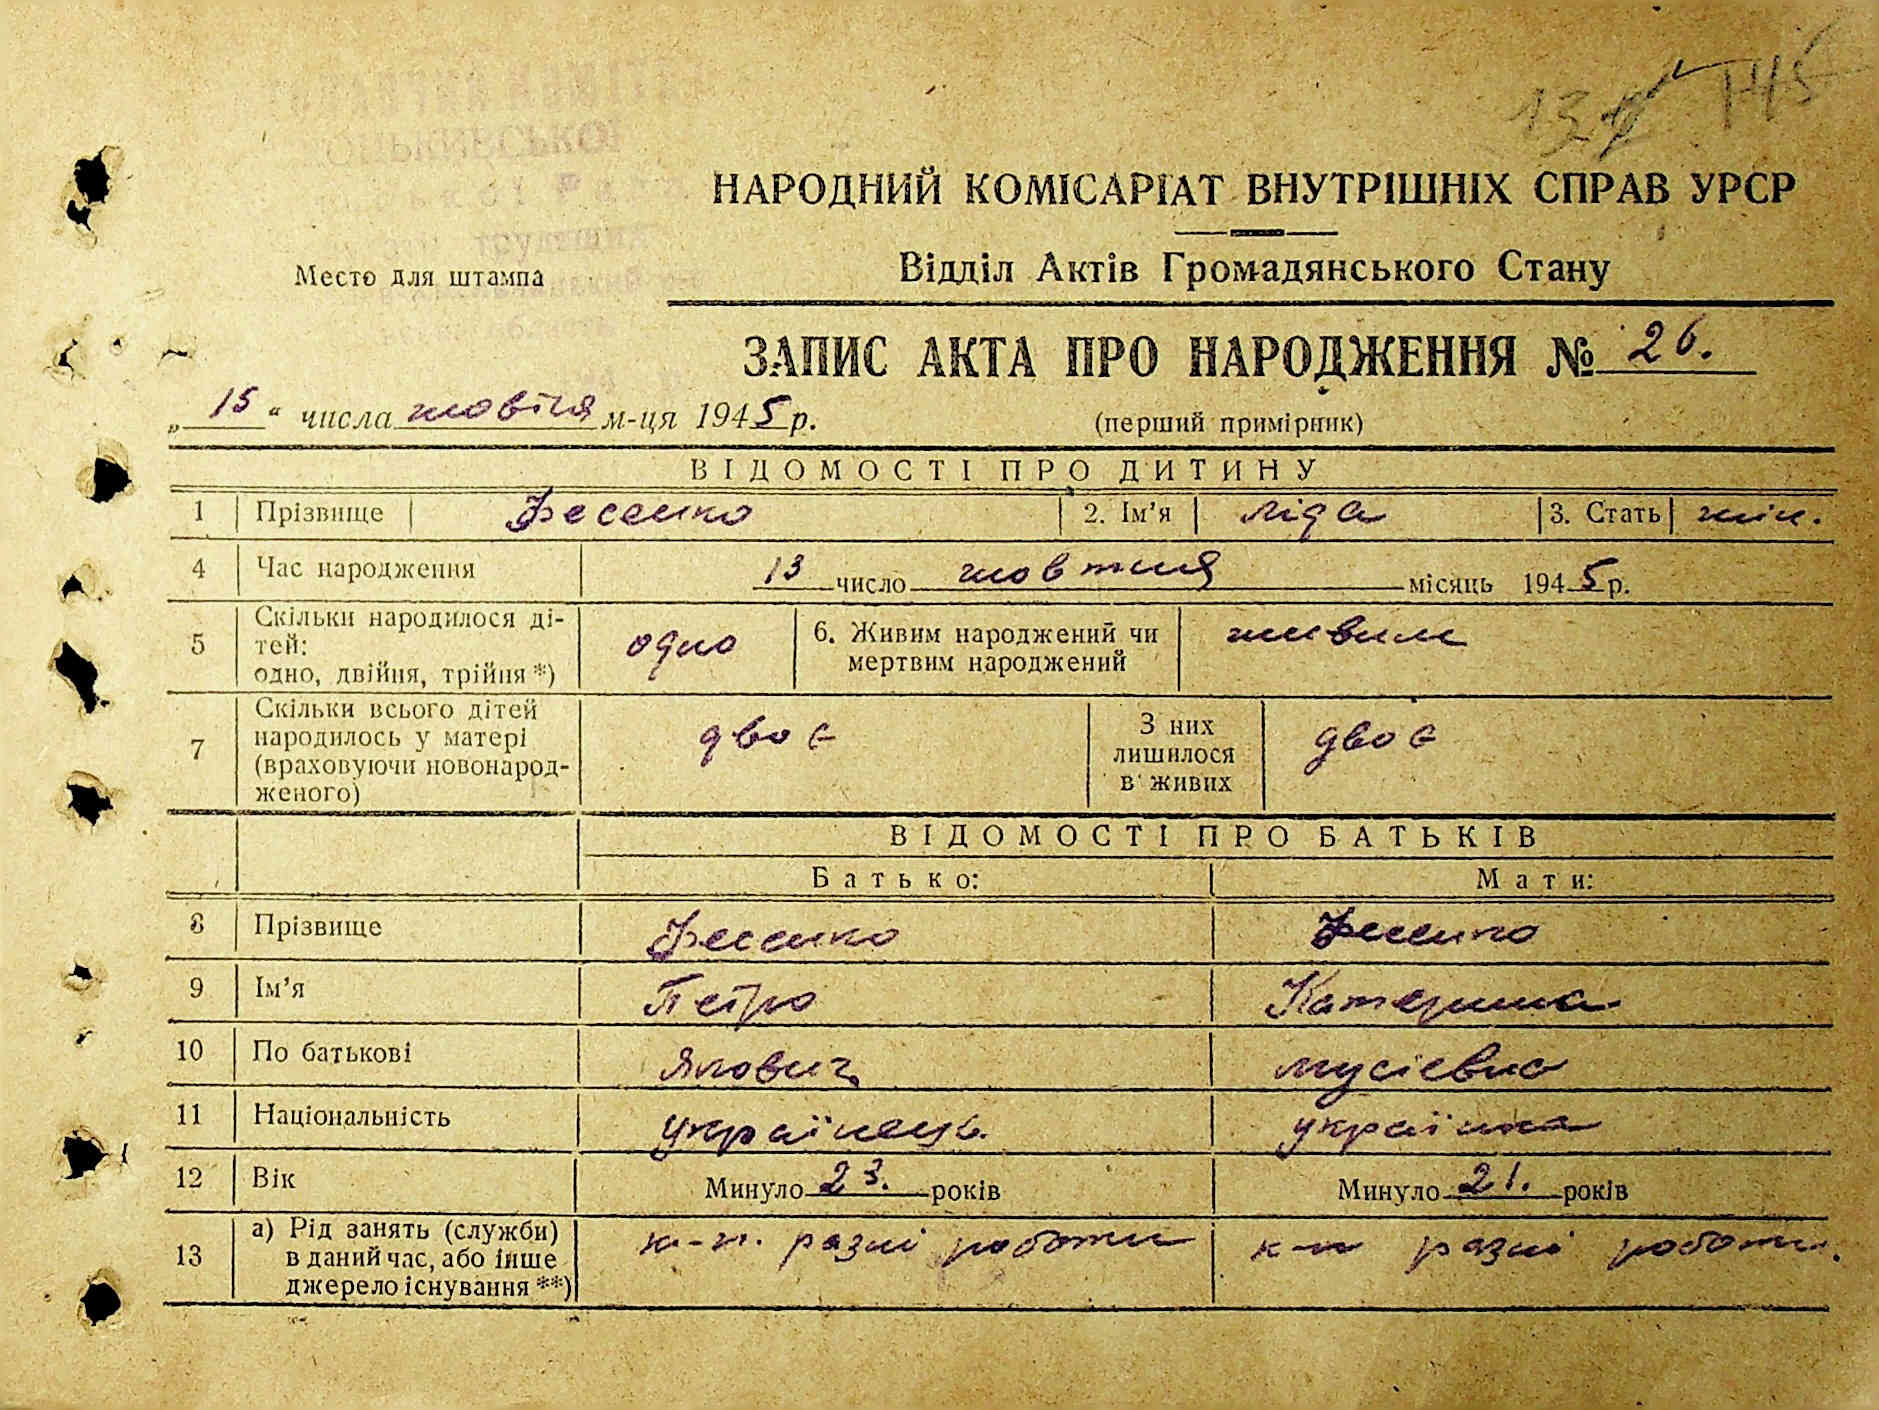 145
НАРОДНИЙ КОМІСАРІАТ ВНУТРІШНІХ СПРАВ УРСР
Место для штампа
Відділ Актів Громадянського Стану
ЗАПИС АКТА ПРО НАРОДЖЕННЯ № 26.
„15“ числа жовтня м-ця 1945 р.
(перший примірник)
ВІДОМОСТІ ПРО ДИТИНУ
1 Прізвище Фесенко 2. Ім’я Ліда 3. Стать жін.
4 Час народження 13 число жовтня місяць 1945 р.
5 Скільки народилося ді-
тей:
одно, двійня, трійня *) одно 6. Живим народжений чи
мертвим народжений живим
7 Скільки всього дітей
народилось у матері
(враховуючи новонарод-
женого) двоє З них
лишилося
в живих двоє
ВІДОМОСТІ ПРО БАТЬКІВ
Батько: Мати:
8 Прізвище Фесенко Фесенко
9 Ім’я Петро Катерина
10 По батькові Якович Мусієвна
11 Національність українець українка
12 Вік Минуло 23. років Минуло 21. років
13 а) Рід занять (служби)
в даний час, або інше
джерело існування **) к-п. разні роботи к-п разні роботи.